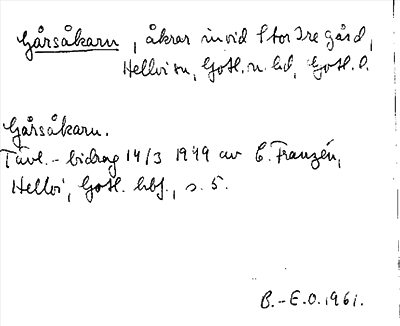 Gårsåkarn, åkrar invid Stor Ire gård,
Hellvi sn, Gotl. n. hd, Gotl. l.
Gårsåkarn.
Tävl.-bidrag 14/3 1949 av E. Franzén,
Hellvi, Gotl. hbf., s. 5.
B.-E.O. 1961.